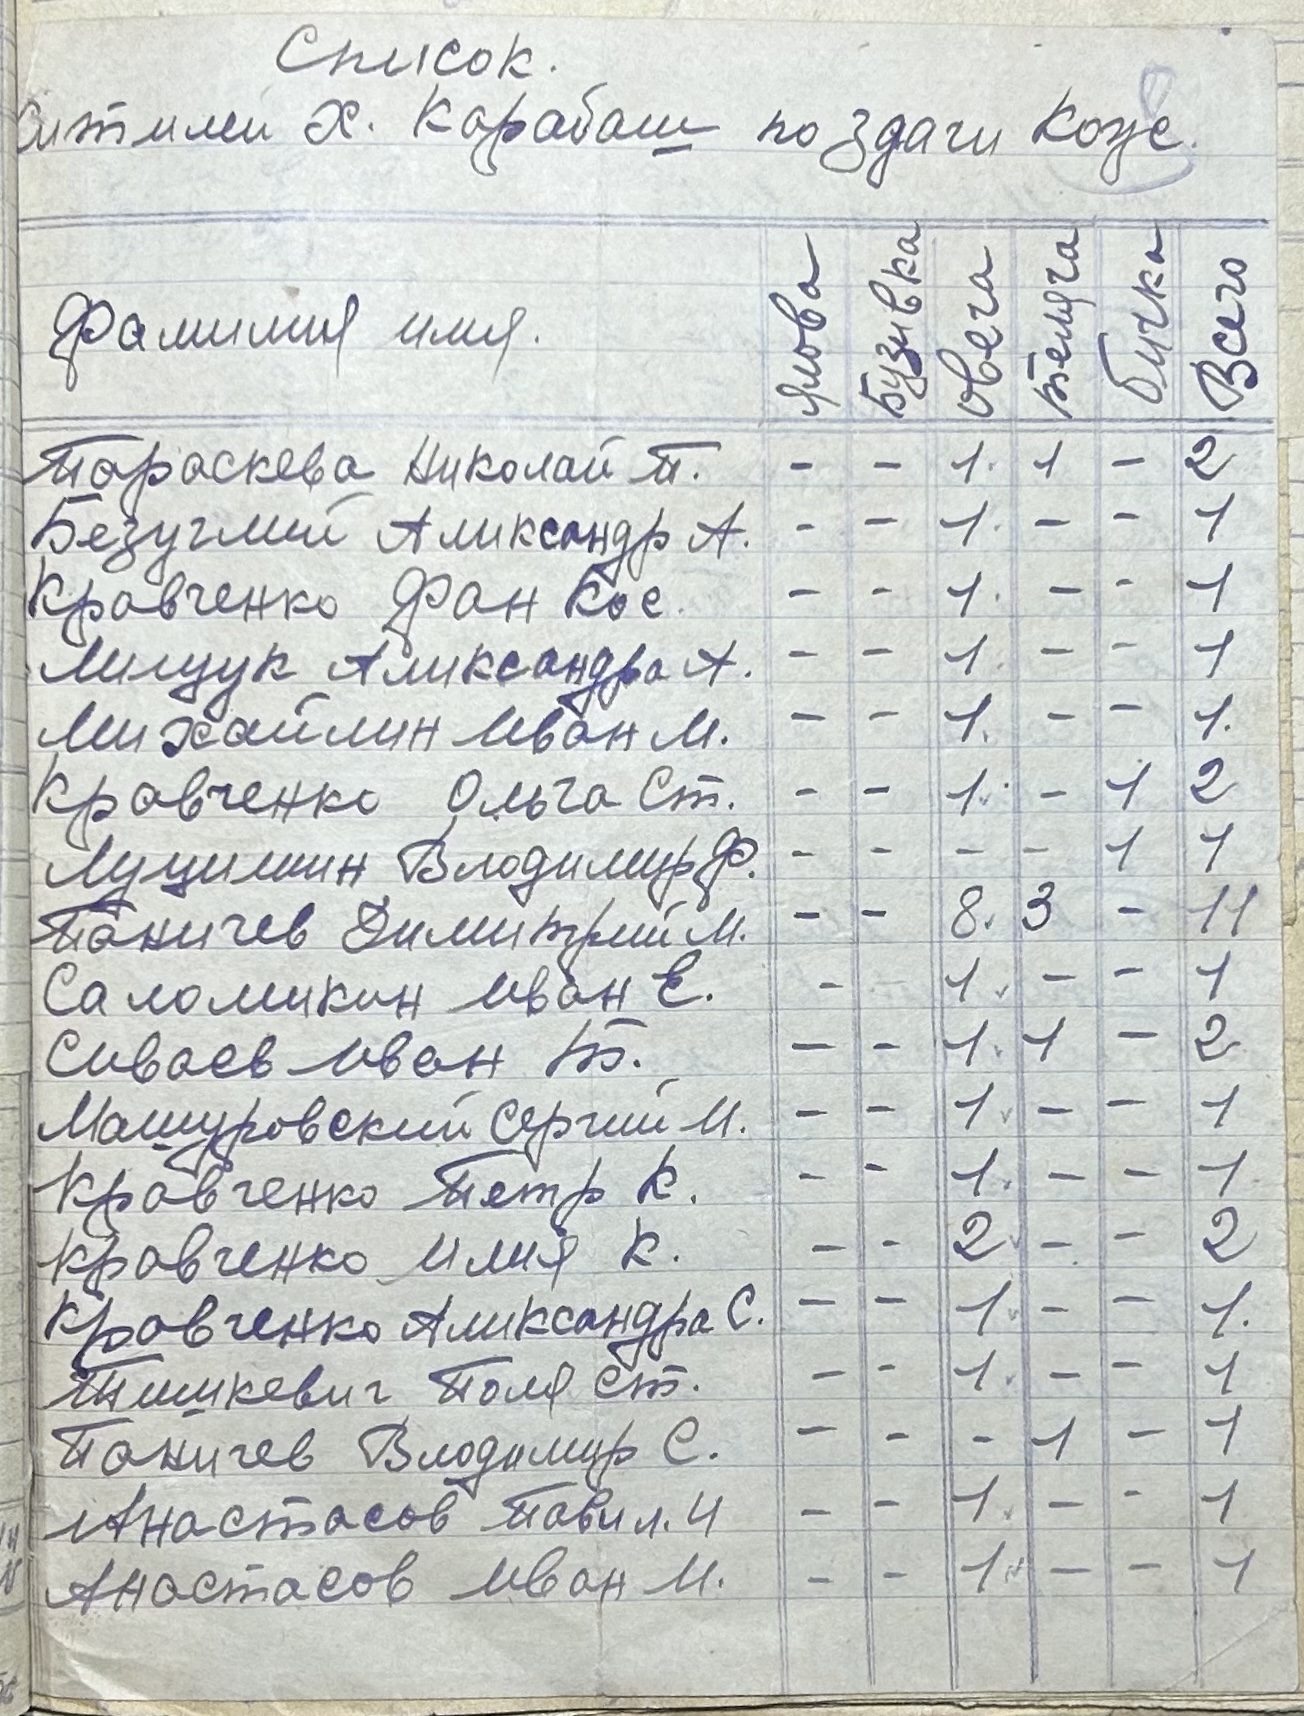 Список.
Житили Х. Карабаш по здачи Коже.
Фамилия имя. Ялова Бузивка Овеча теляча бичка Всего
Параскева Николай П. - - 1. 1 - 2
Безуглий Аликсандр А. - - 1. - - 1
Кравченко Фан Кос. - - 1. - - 1
Мищук Аликсандра А. - - 1. - - 1
Михайлин Иван И. - - 1. - - 1.
Кравченко Ольга Ст. - - 1. - 1 2
Луцишин Владимир Ф. - - - - 1 1
Паничев Димитрий И. - - 8. 3 - 11
Саломикин Иван Е. - 1 - - 1
Сиваев Иван П. - - 1. 1 - 2
Машуровский Сергий И. - - 1 - - 1
Кравченко Петр К. - - 1. - - 1
Кравченко Илия К. - - 2 - - 2
Кравченко Аликсандра С. - - 1 - - 1.
Пишкевич Поля Ст. - - 1. - - 1
Паничев Владимир С. - - - 1 - 1
Анастасов Павил. И - - 1. - - 1
Анастасов Иван И. - - 1 - - 1